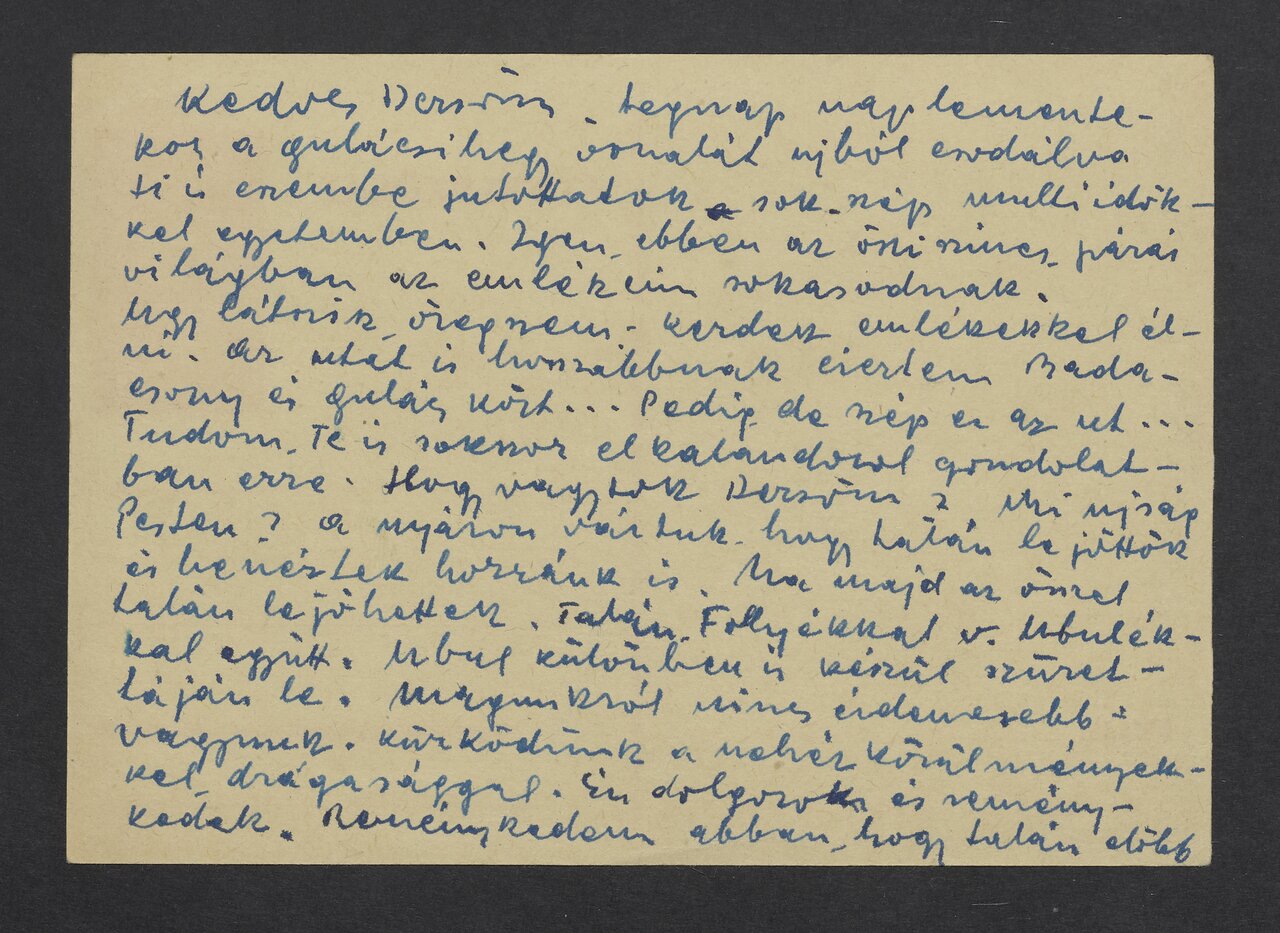 Kedves Dersőm, tegnap naplemente-
kor, a gulácsi hegy vonalát ujból csodálva
ti is eszembe jutottatok a sok szép multi idők-
kel egyetemben. Igen, ebben az őszi szines, párás
világban az emlékeim sokasodnak.
Ugy látszik, öregszem - kezdek emlékekkel él-
ni. Az utat is hosszabbnak éreztem Bada-
csony és gulács közt... Pedig de szép ez az ut...
Tudom, Te is sokszor elkalandozol gondolat-
ban erre. Hogy vagytok Dersőm? Mi ujság
Pesten? A nyáron vártuk, hogy talán lejöttök
és benéztek hozzánk is. Na majd az ősszel
talán lejöhettek. Talán Follyékkal v. Ubulék-
kal együtt. Ubul különben is készül szüret-
táján le. Magunkról nincs érdemesebb -
vagyunk. Küzködünk a nehéz körülmények-
kel, drágasággal. Én dolgozok és remény-
kedek. Reménykedem abban, hogy talán előbb